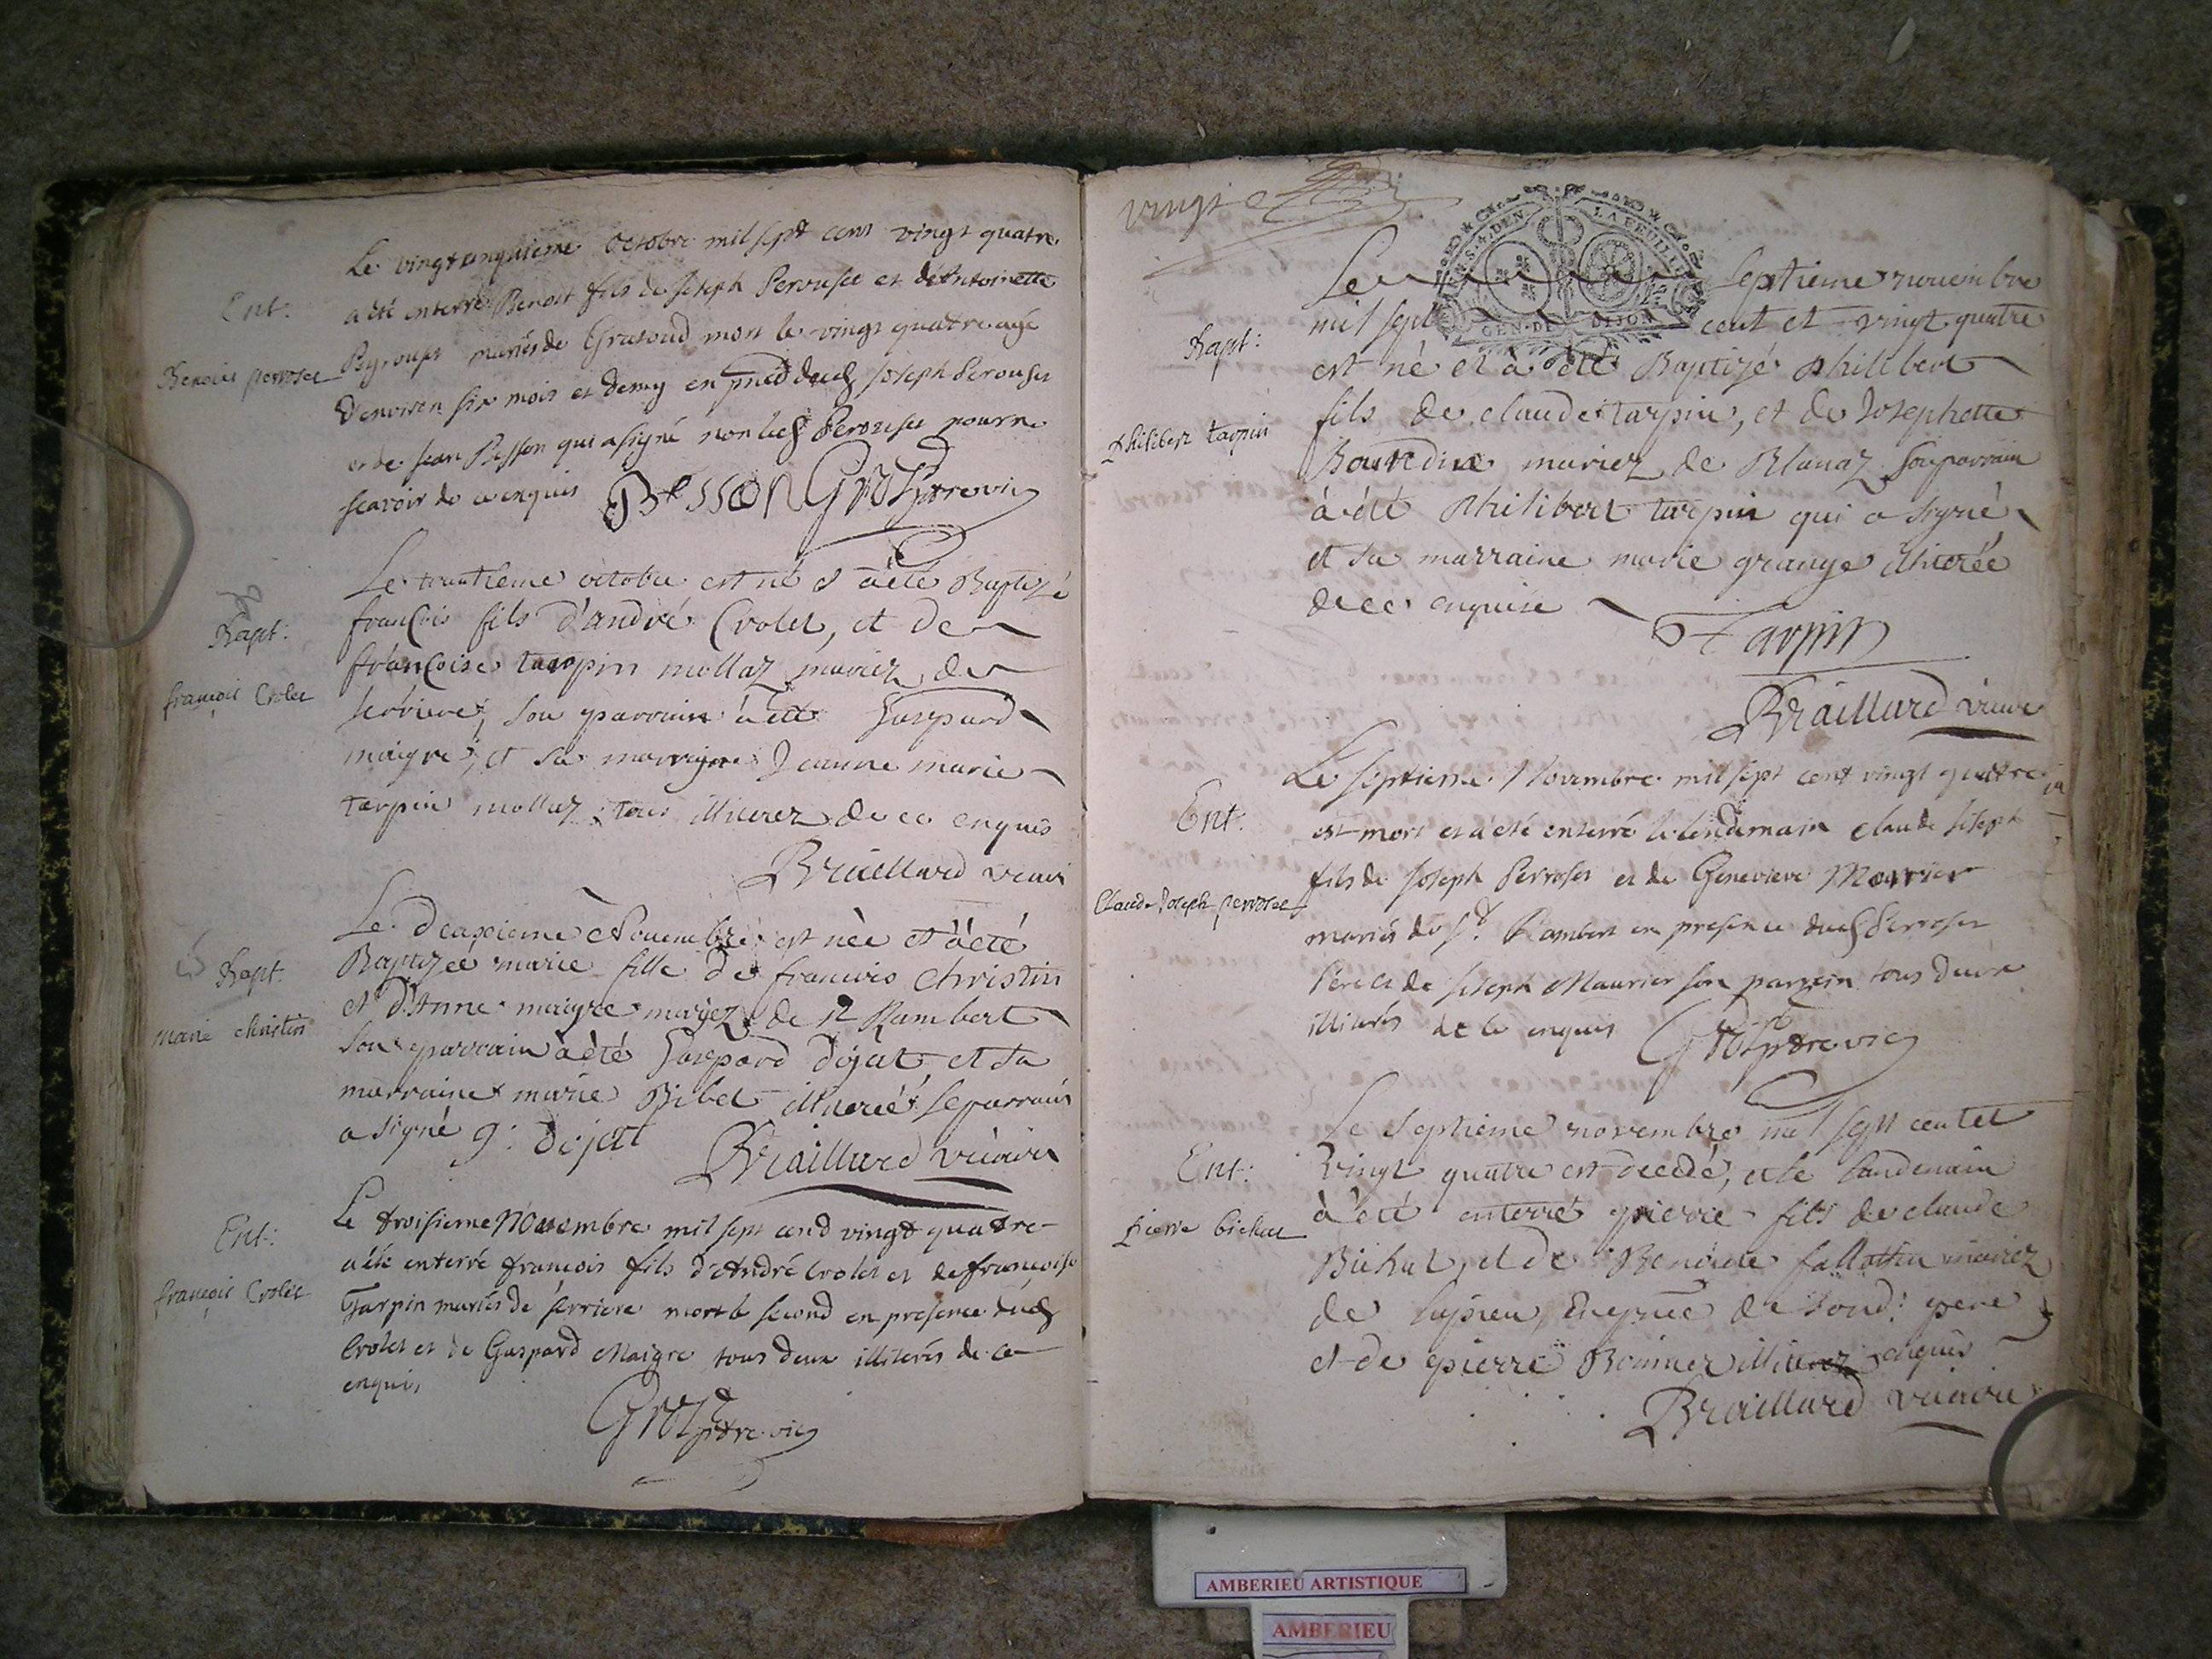 Le vingtcinquieme octobre mil sept cens vingt quatre
Ent:
a été enterré Benoit fils de Joseph Perouse et d'Antoinette
Benoist perroset
mariés de mort le vingt quatre agé
D'environ six mois et demy en Joseph Perouse
et de Jean Besson qui a signé non led Perouse pour ne
scavoir de ce enquis Besson Gros ptre vic
Le trantieme octobre est né et à été Baptizé
Bapt:
françois fils d'andré Crolet, et de
françoise tarpin mollaz mariez de
françois Crolet
serriere, son parrain à été Gaspard
maigre, et sa marraine Jeanne marie
tarpin mollaz tous illiterez de ce enquis
Braillard vicaire
Le Deuxieme Novembre est née et à été
Bapt.
Baptizée marie fille de francois Christin
et D'Anne maigre mariez de st Rambert
marie christin
son parrain à été Gaspard dejat et sa
marraine marie Bibet illiterée le parrain
a signé g: dejat Braillard vicaire
Le troisieme Novembre mil sept cend vingt quatre
Ent:
a été enterré francois fils d'André Crolet et de francoise
françois Crolet
Tarpin mariés de serriere mort le second en presence dud
Crolet et de Gaspard Maigre tous deux illiterés de ce
enquis
Gros ptre vic
vingt
GEN. DE DIJON
Le septieme novembre
mil sept cent et vingt quatre
Bapt:
est né et à été Baptizé philibert
fils de claude tarpin, et de Josephette
philibert tarpin
mariez de Blanaz son parrain
à été philibert tarpin qui a signé
et sa marraine marie grange illiterée
de ce enquise
Tarpin
Braillard vicaire
Le septieme Novembre mil sept cent vingt quatre
Ent:
est mort et a été enterré le lendemain claude Joseph
fils de Joseph Perroset et de Genevieve Maurier
Claude Joseph perroset
mariés de St. Rambert en presence dud Perroset
Pere et de Joseph Maurier son parrein tous deux
illiterés de ce enquis Gros ptre vic
Le septieme novembre mil sept cent et
Ent:
vingt quatre est decedé, et le landemain
à été enterré pierre fils de claude
pierre bichat
Bichat, et de Benoite mariez
de pere
et de pierre Bonnier enquis
Braillard vicaire
AMBERIEU ARTISTIQUE
AMBERIEU